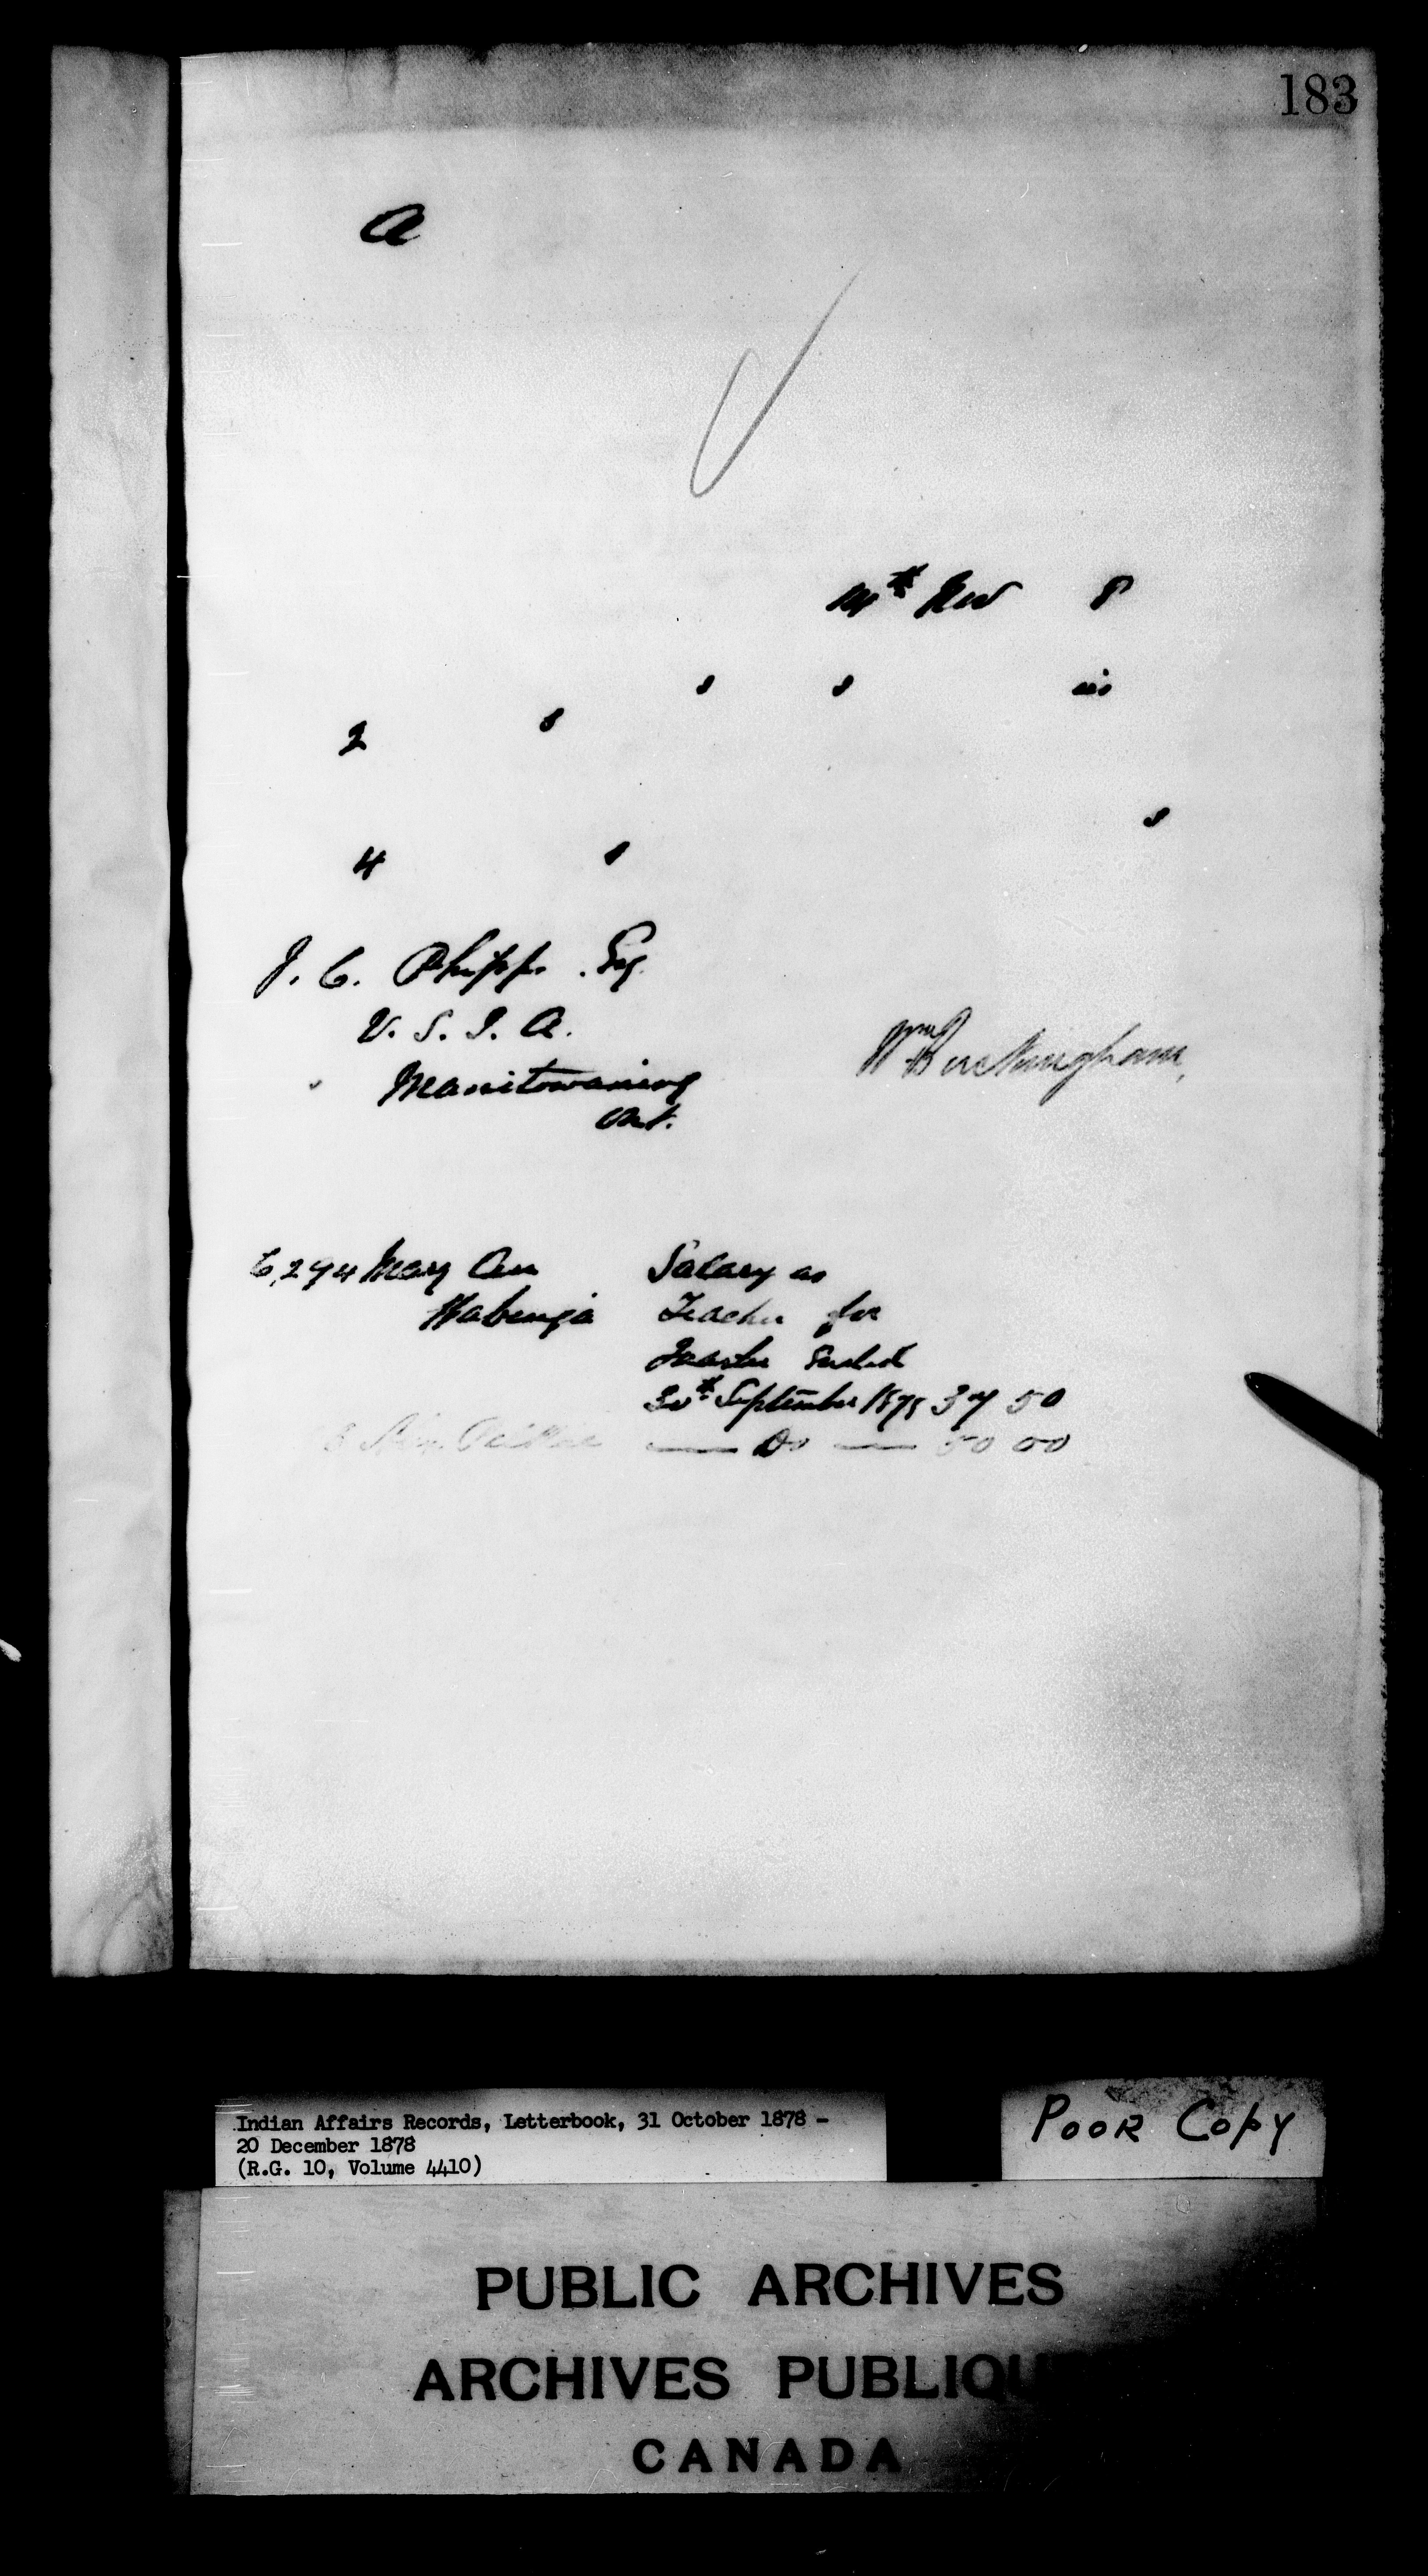 183
a
14th Nov 8
s s us
2 s
s
4 s
J. C. Phipps. Esq.
V. S. I. A.
Manitowaning
Ont.
Wm Buckingham
6,294 Mary Ann Salary as
Wabenga Teacher for
Quarter Ended
30th September 1878 37 50
Do 50 00
Indian Affairs Records, Letterbook, 31 October 1878 -
20 December 1878
(R.G. 10, Volume 4410)
POOR COPY
PUBLIC ARCHIVES
ARCHIVES PUBLIQU
CANADA